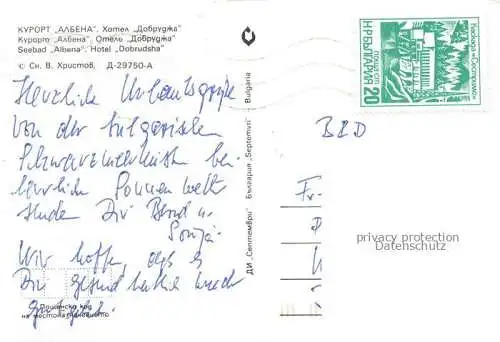 КУРОРТ „АЛБЕНА". Хотел „Добруджа"
Курорт „Албена". Отель „Добруджа"
Seebad „Albena". Hotel „Dobrudsha"
© Сн. В. Христов. Д-29750-А
Herzliche Urlaubsgrüße
von der bulgarischen
Schwarzmeerküste bei
herrlich Sonnen wett
senden Dir Bernd u.
Sonja
Wir hoffen, daß es
Dir gesund
gut geht.
Пощенски код
на местоназначението
ДИ „Септември" България „Septemvri" Bulgaria
НР БЪЛГАРИЯ
ПОЩА
20
BRD
Fr
privacy protection
Datenschutz